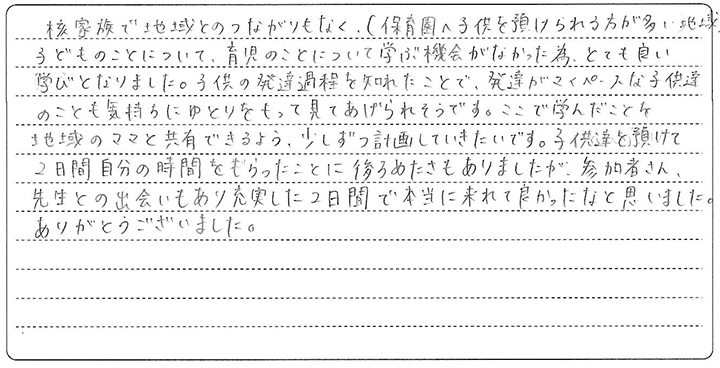 核家族で地域とのつながりもなく、(保育園へ子供を預けられる方が多い地域
子どものことについて、育児のことについて学ぶ機会がなかった為、とても良い
学びとなりました。子供の発達過程を知れたことで、発達がマイペースな子供達
のことも気持ちにゆとりをもって見てあげられそうです。ここで学んだことを
地域のママと共有できるよう、少しずつ計画していきたいです。子供達を預けて
2日間自分の時間をもらったことに後ろめたさもありましたが、参加者さん、
先生との出会いもあり充実した2日間で本当に来れて良かったなと思いました。
ありがとうございました。